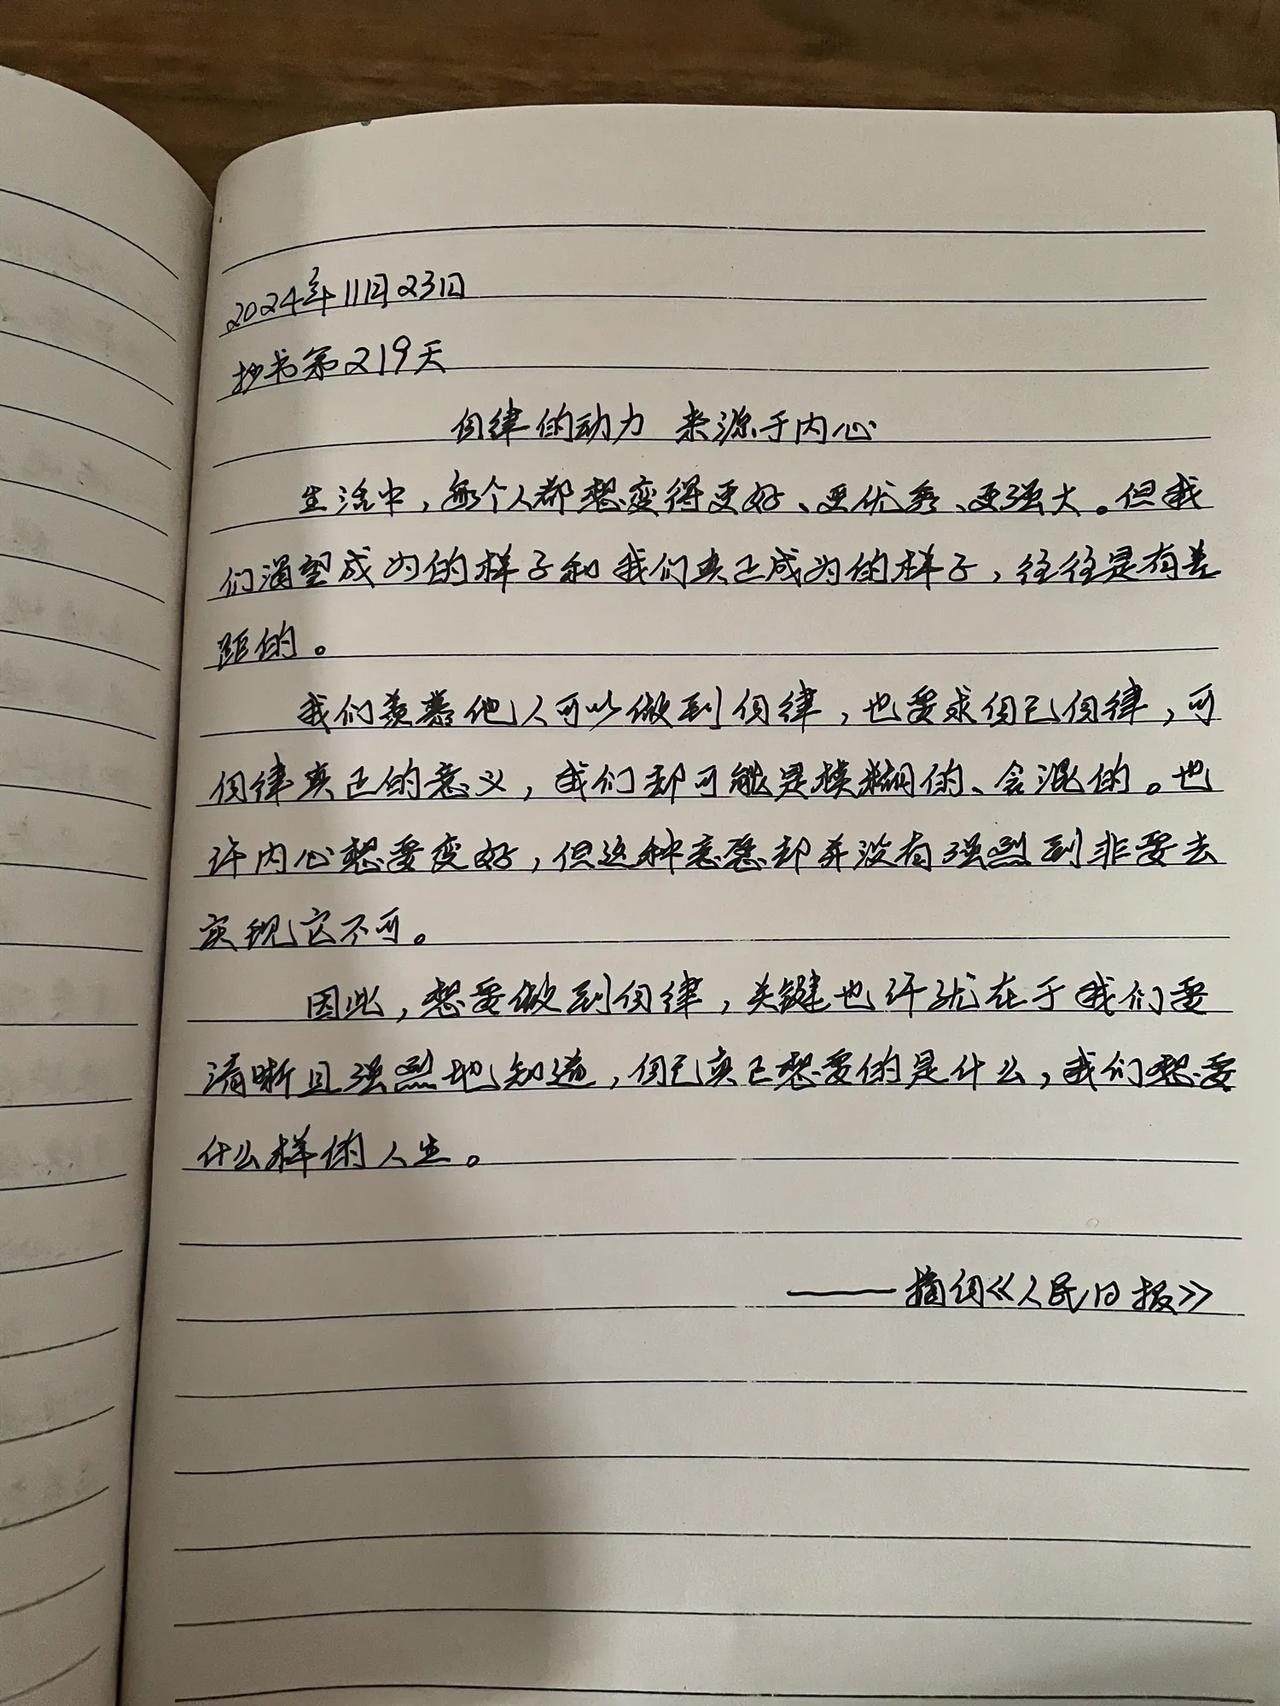 2024年11月23日
抄书第219天
自律的动力 来源于内心
生活中，每个人都想变得更好、更优秀、更强大。但我
们渴望成为的样子和我们真正成为的样子，往往是有差
距的。
我们羡慕他人可以做到自律，也要求自己自律，可
自律真正的意义，我们却可能是模糊的、含混的。也
许内心想要变好，但这种意愿却并没有强烈到非要去
实现它不可。
因此，想要做到自律，关键也许就在于我们要
清晰且强烈地知道，自己真正想要的是什么，我们想要
什么样的人生。
——摘自《人民日报》